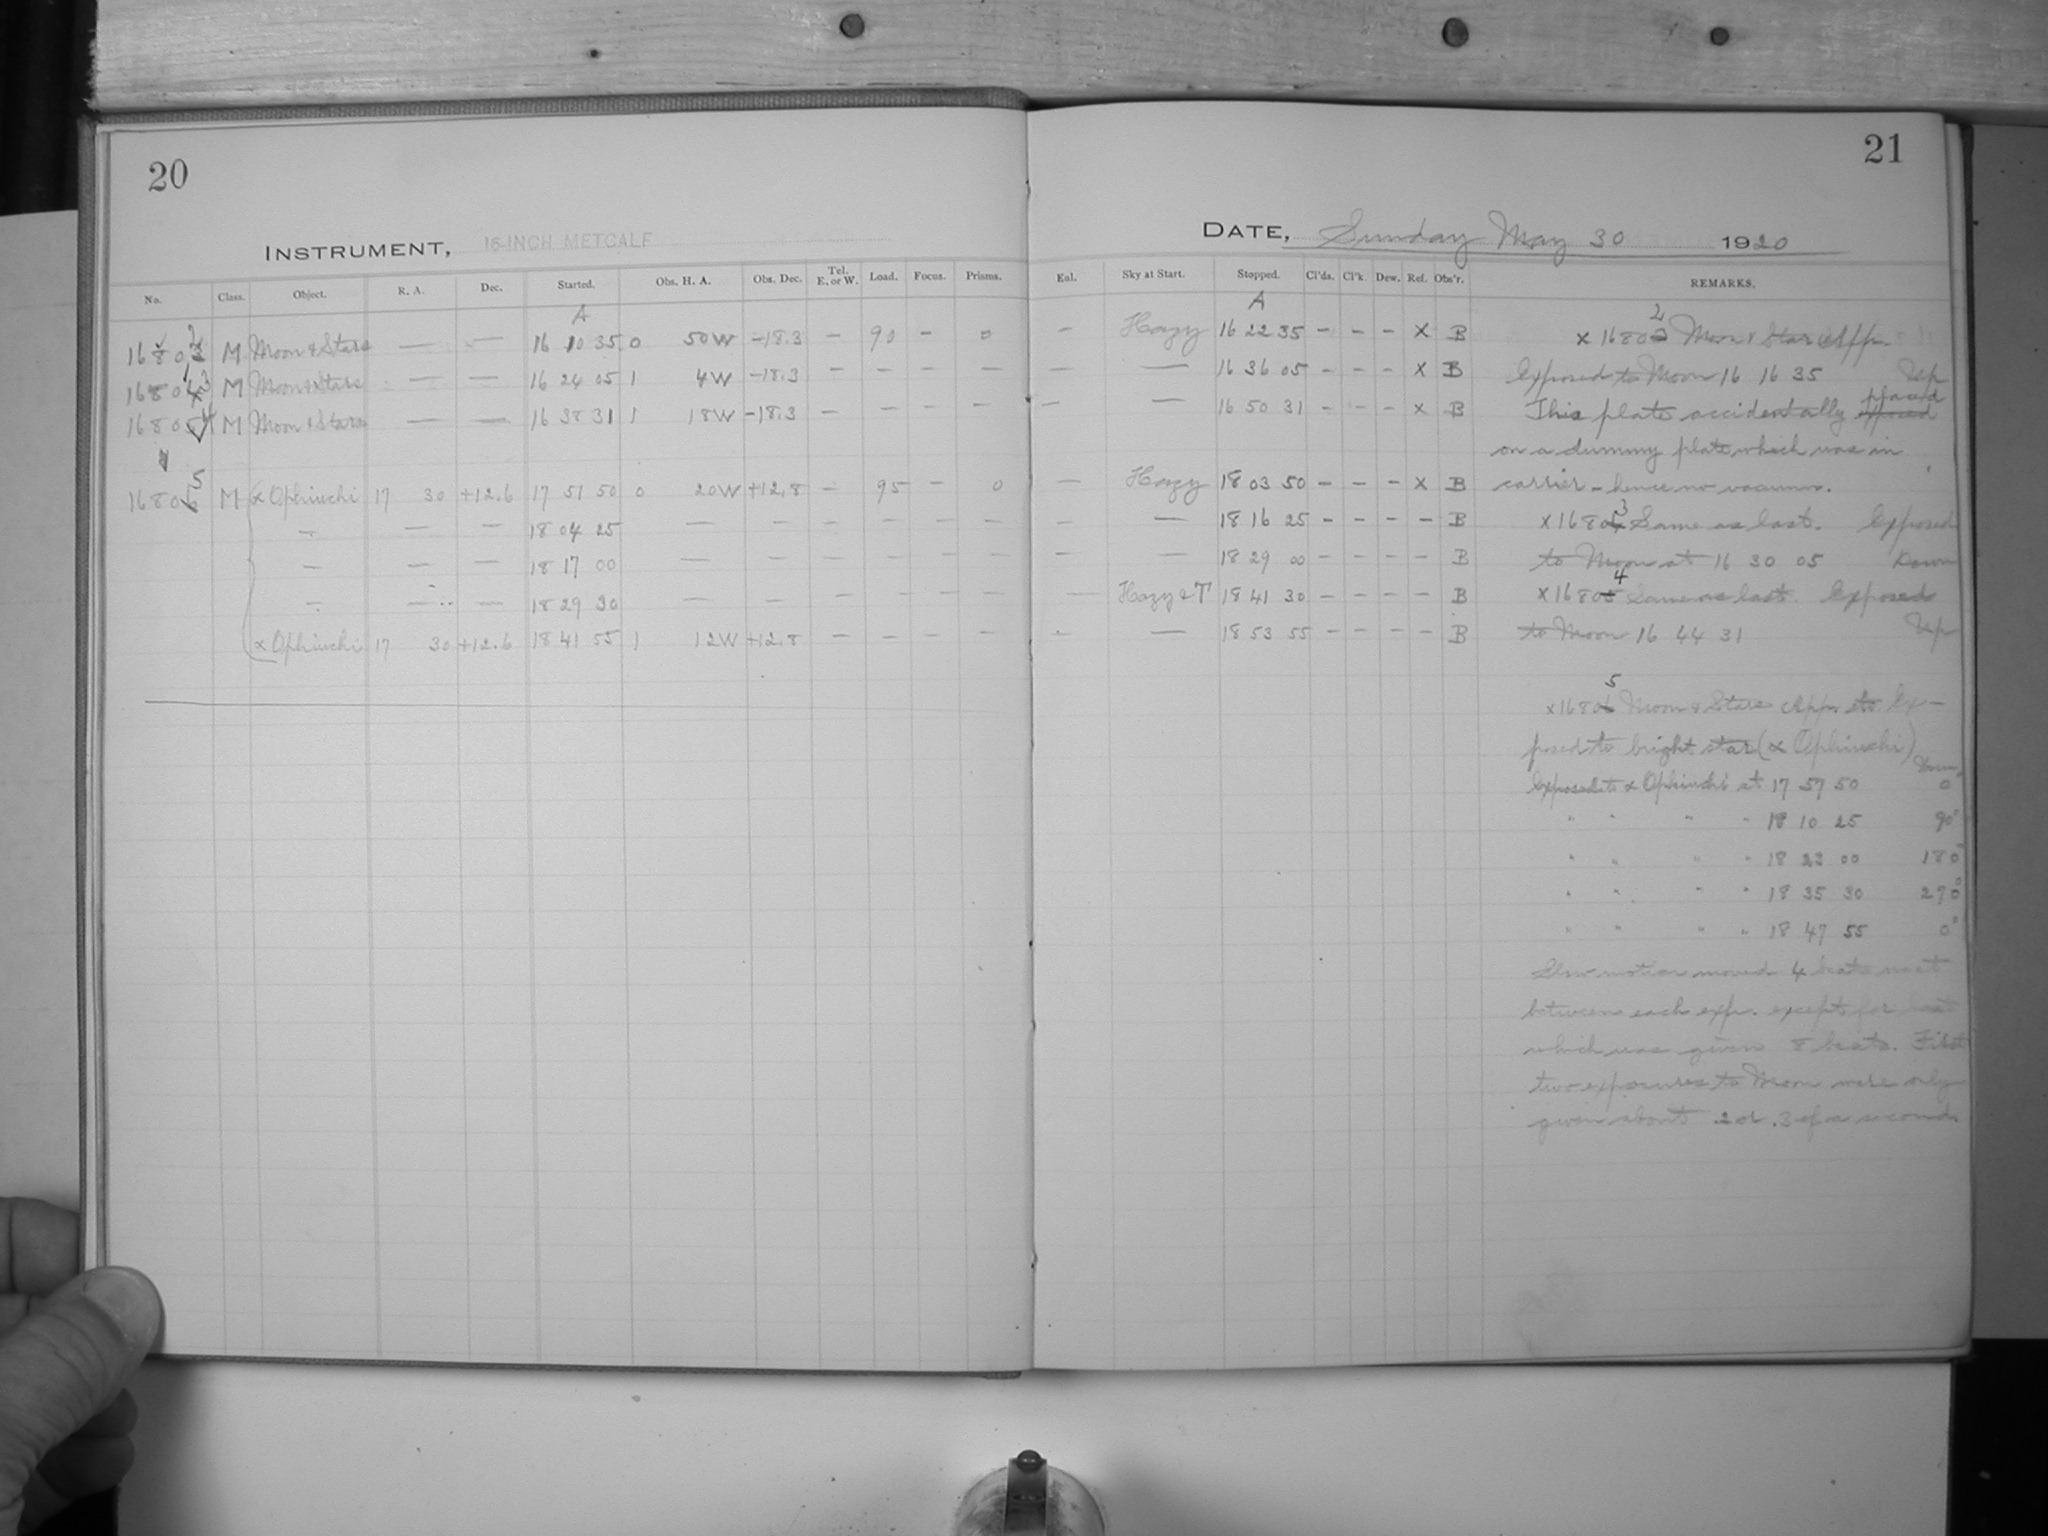 20
INSTRUMENT, 16-INCH METCALF
No. Class. Object. R. A. Dec. Started. Obs. H. A. Obs. Dec. Tel. E. or W. Load. Focus. Prisms.
A
16802 M Moon & Stars — — 16 10 35 0 50W -18.3 — 90 - 0
16803 M Moon & Stars — — 16 24 05 1 4W -18.3 — — — —
16804 M Moon & Stars — — 16 38 31 1 18W -18.3 — - - —
16805 M α Ophiuchi 17 30 +12.6 17 51 50 0 20W +12.8 — 95 — 0
— — — 18 04 25 — — — - - —
— — — 18 17 00 — — — — — —
— — — 18 29 30 — — — - - —
α Ophiuchi 17 30 +12.6 18 41 55 1 12W +12.8 — - - —
21
DATE, Sunday May 30 1920
Eal. Sky at Start. Stopped. Cl'ds. Cl'k. Dew. Ref. Obs'r. REMARKS.
A
— Hazy 16 22 35 - - - x B
— — 16 36 05 - - - x B
— — 16 50 31 - - - x B
— Hazy 18 03 50 - - - x B
— — 18 16 25 - - - - B
— — 18 29 00 - - - - B
— Hazy & T 18 41 30 - - - - B
- — 18 53 55 - - - - B
x 16802 Moon & Star App.
Exposed to Moon 16 16 35 Up
This plate accidentally placed
on a dummy plate which was in
carrier - hence no vacuum.
x 16803 Same as last. Exposed
to Moon at 16 30 05 Down
x 16804 Same as last. Exposed
to Moon 16 44 31 Up
x 16805 Moon & Stars App. Ex-
posed to bright star (α Ophiuchi)
Exposed to α Ophiuchi at 17 57 50 0°
" " " " 18 10 25 90°
" " " " 18 23 00 180°
" " " " 18 35 30 270°
" " " " 18 47 55 0°
Slow motion moved 4 beats west
between each exp. except for last
which was given 8 beats. First
two exposures to Moon were only
given about .2 or .3 of a second